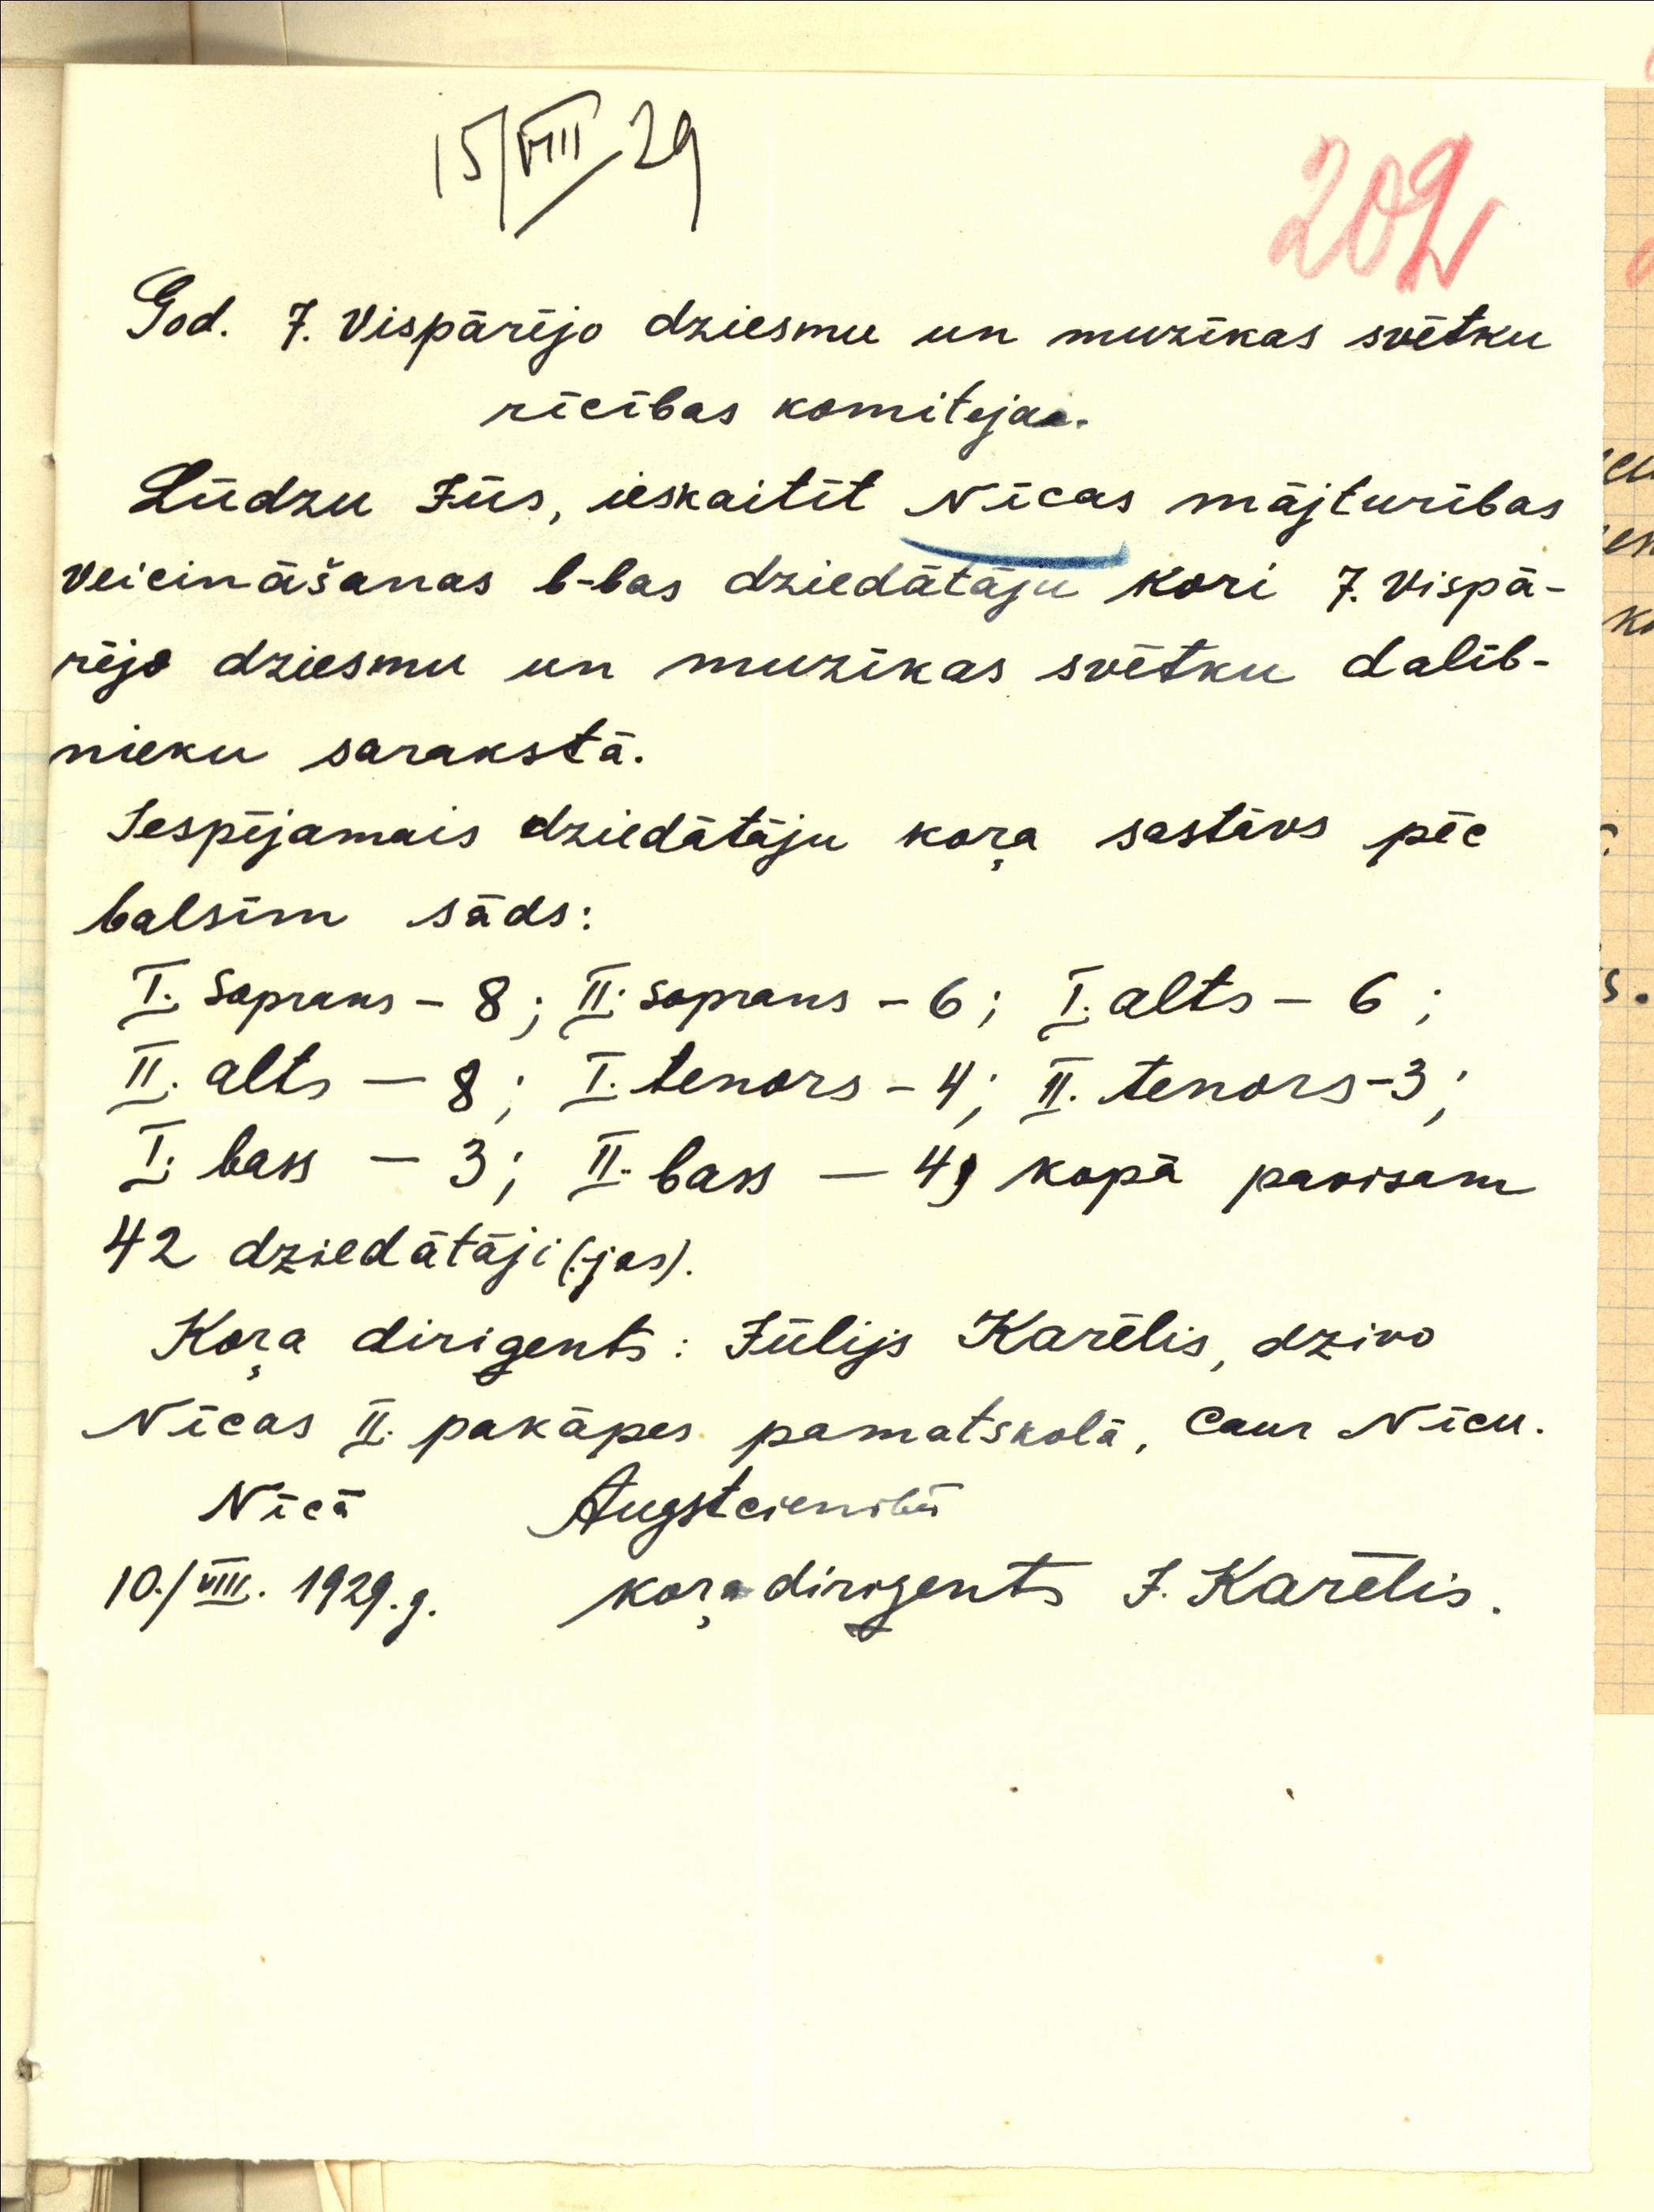 15/VIII 29
202
God. 7. Vispārējo dziesmu un muzikas svētku
rīcības komitejai.
Lūdzu Jūs, ieskaitīt Nīcas mājturības
veicināšanas b-bas dziedātāju kori 7. Vispā-
rējo dziesmu un muzikas svētku dalīb-
nieku sarakstā.
Iespējamais dziedātāju koŗa sastāvs pēc
balsīm šāds:
I. soprans – 8; II. soprans – 6; I. alts – 6;
II. alts – 8; I. tenors – 4; II. tenors – 3;
I. bass – 3; II. bass – 4; kopā pavisam
42 dziedātāji (-jas).
Koŗa diriģents: Jūlijs Karēlis, dzīvo
Nīcas II. pakāpes pamatskolā, caur Nīcu.
Nīcā Augstcienībā
10./VIII. 1929. g. koŗa diriģents J. Karēlis.